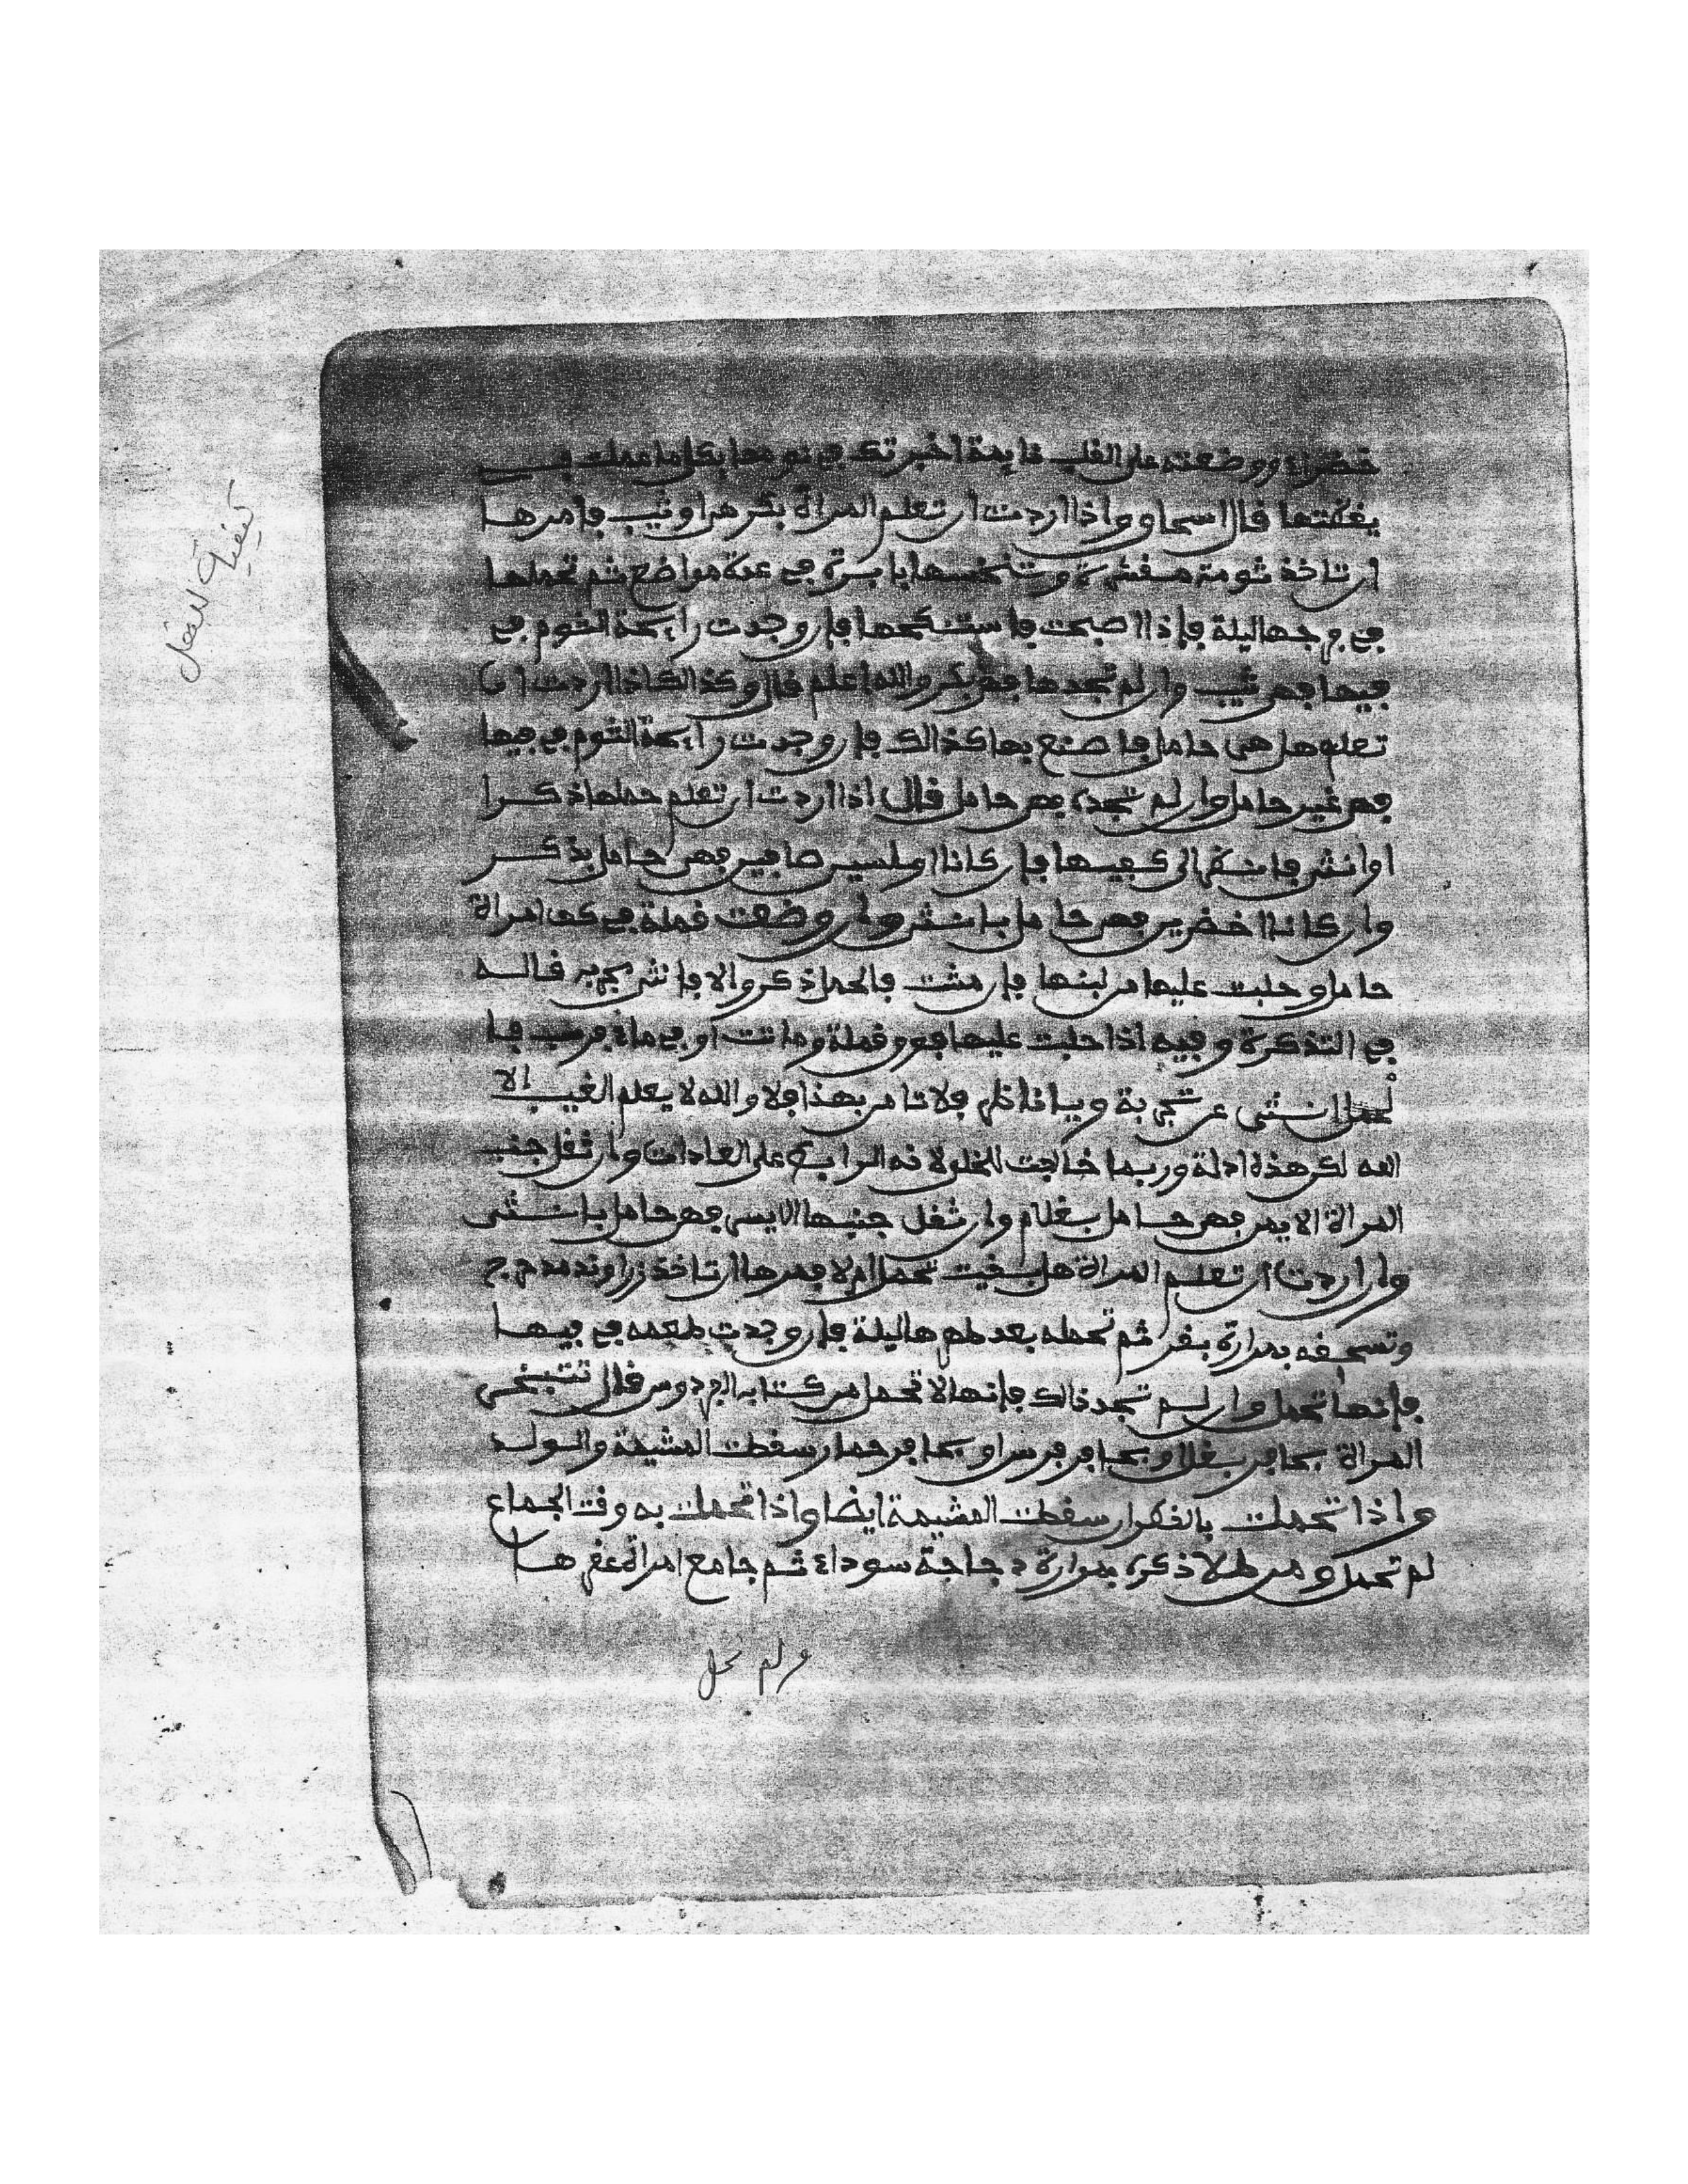 خضراء ووضعته على القلب نايمة اخبرتك في نومها بكل ما عملت في
يقظتها قال اسحاو واذا اردت ان تعلم المراة بكر هي او ثيب فامرها
ان تاخذ ثومة مقشرة وتنخسها بابرة في عدة مواضع ثم تحملها
في فرجها ليلة فإذا اصبحت فاستنكهها فإن وجدت رايحة الثوم في
فيها فهي ثيب وان لم تجدها فهي بكر والله اعلم قال وكذالك اذا اردت ان
تعلم هل هي حامل فاصنع بها كذالك فإن وجدت رايحة الثوم في فيها
فهي غير حامل وان لم تجده فهي حامل قال اذا اردت ان تعلم حملها ذكرا
او انثى فانظر الى كعبيها فإن كانا املسين صافيين فهي حامل بذكر
وان كانا اخضرين فهي حامل بانثى وان وضعت قملة في كف امراة
حامل وحلبت عليها من لبنها فإن مشت فالحمل ذكر والا فانثى مجرب قاله
في التذكرة وفيه اذا حلبت عليها فوق قملة وماتت او في ماء فرسب فا
لحمل انثى عن تجربة ويا ناظر فلا تامن بهذا فلا والله لا يعلم الغيب الا
الله لكن هذه ادلة وربما خالفت للخلوة فه الرابع على العادات وان ثقل جنب
المراة الايمن فهي حامل بغلام وان ثقل جنبها الايسر فهي حامل بانثى
وان اردت ان تعلم المراة هل بقيت تحمل ام لا فمرها ان تاخذ زراوند مدحرج
وتسحقه بمرارة بقر ثم تحمله بعد طهرها ليلة فإن وجدت طعمه في فيها
فإنها تحمل وان لم تجد ذالك فإنها لا تحمل من كتابه الفردوس قال تتبخر
المراة بحافر بغل او بحافر فرس او بحافر حمار سقطت المشيمة والولد
واذا تحملت بالقطران سقطت المشيمة ايضا واذا تحملت به وقت الجماع
لم تحمل ومن طلا ذكره بمرارة دجاجة سوداء ثم جامع امراة عقرها
ولم تحمل